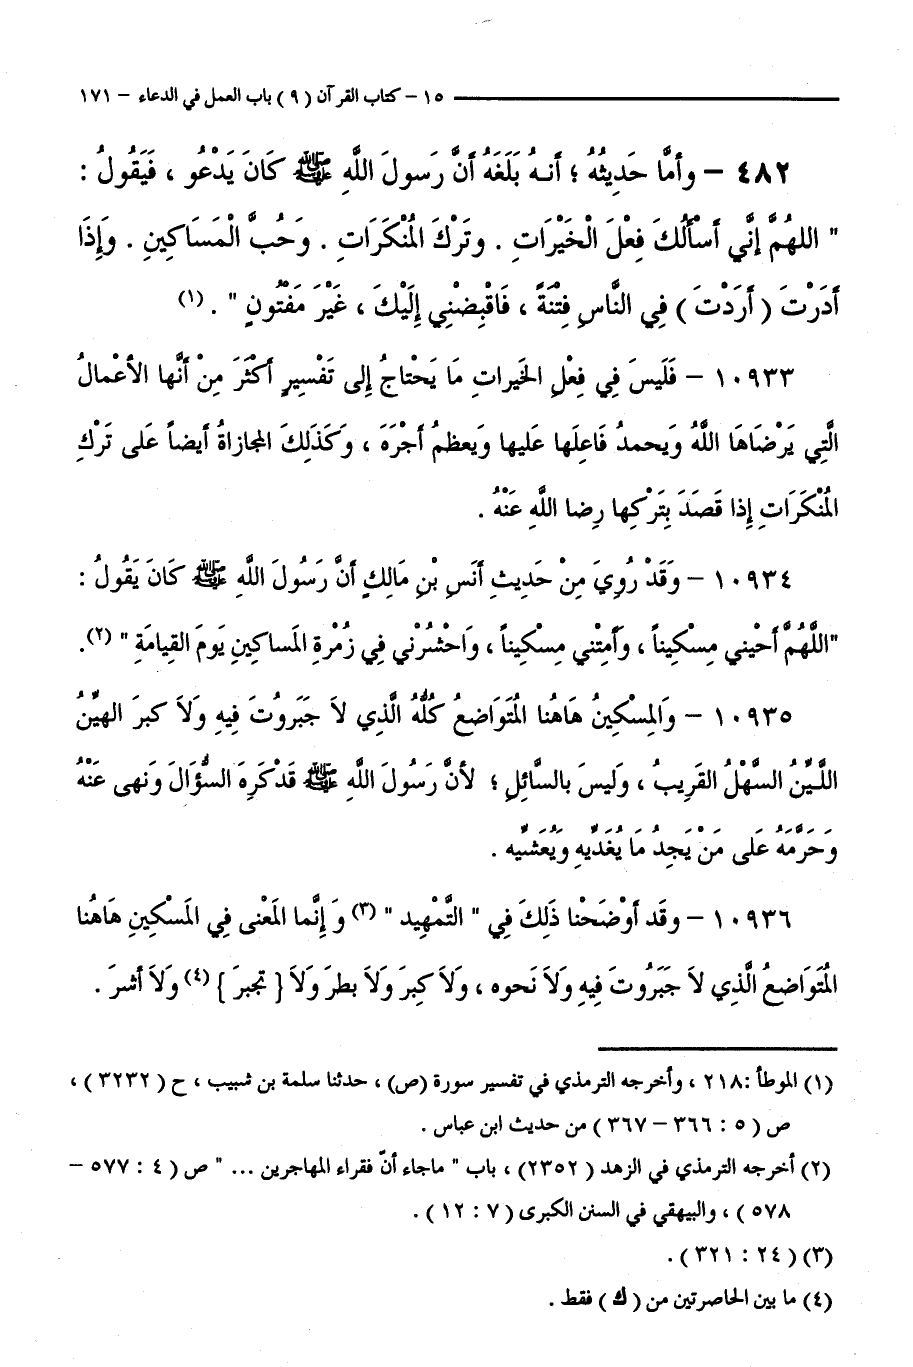 ١٥ – كتاب القرآن (٩) باب العمل في الدعاء – ١٧١
٤٨٢ – وأمَّا حَدِيثُهُ ؛ أنـه بَلَغَه أنَّ رَسولَ اللَّهِ ﷺ كَانَ يَدْعُو ، فَيَقُولُ :
" اللهُمَّ إنَّي أسْألُكَ فِعْلَ الْخَيْرَاتِ . وتَرْكَ المُنْكَرَاتِ . وَحُبَّ الْمَسَاكِينِ . وَإِذَا
أدَرْتَ ( أرَدْتَ ) فِي النَّاسِ فِتْنَةً ، فَاقْبِضْنِي إِلَيْكَ ، غَيْرَ مَفْتُونٍ " . (١)
١٠٩٣٣ – فَلَيسَ فِي فِعْلِ الخَيراتِ مَا يَحْتاجُ إِلى تَفْسِيرٍ أكْثَرَ مِنْ أنَّها الأعْمالُ
الَّتِي يَرْضَاهَا اللَّهُ وَيَحمدُ فَاعِلَها عَليها وَيَعظمُ أجْرَهَ ، وَكَذَلِكَ المجازاةُ أيضاً عَلى تَرْكِ
المُنْكَرَاتِ إِذا قَصَدَ بِتَرْكِها رِضا اللَّهِ عَنْهُ .
١٠٩٣٤ – وَقَدْ رُوِيَ مِنْ حَدِيثِ أنَسِ بْنِ مَالِكٍ أنَّ رَسُولَ اللَّهِ ﷺ كَانَ يَقُولُ :
"اللَّهُمَّ أحْيِني مِسْكِيناً ، وَأمِتْنِي مِسْكِيناً ، وَاحْشُرْنِي فِي زُمْرةِ المَساكِينِ يَومَ القِيامَةِ " (٢).
١٠٩٣٥ – وَالمِسْكِينُ هَاهُنا المُتَوَاضِعُ كُلُّهُ الَّذِي لاَ جَبَرُوتَ فِيهِ وَلاَ كبرَ الهيِّنُ
اللَّـيِّنُ السَّهْلُ القَريبُ ، وَليسَ بالسَّائِلِ ؛ لأنَّ رَسُولَ اللَّهِ ﷺ قَدْ كَرِهَ السُّؤَالَ وَنَهى عَنْهُ
وَحَرَّمَهُ عَلى مَنْ يَجِدُ مَا يُغَدِّيهِ وَيُعَشِّيه .
١٠٩٣٦ – وقَد أوْضَحْنا ذَلِكَ فِي " التَّمْهِيد " (٣) وَ إِنَّما المَعْنى فِي المَسْكِينِ هَاهُنا
المُتَوَاضِعُ الَّذِي لاَ جَبَرُوتَ فِيهِ وَلاَ نَحوه ، وَلاَ كِبرَ وَلاَ بطرَ وَلاَ { تجبرَ } (٤) وَلاَ أشرَ .
(١) الموطأ :٢١٨ ، وأخرجه الترمذي في تفسير سورة (ص) ، حدثنا سلمة بن شبيب ، ح ( ٣٢٣٢ ) ،
ص ( ٥ : ٣٦٦ – ٣٦٧ ) من حديث ابن عباس .
(٢) أخرجه الترمذي في الزهد ( ٢٣٥٢) ، باب " ماجاء أنّ فقراء المهاجرين ... " ص ( ٤ : ٥٧٧ –
٥٧٨ ) ، والبيهقي في السنن الكبرى ( ٧ : ١٢ ) .
(٣) ( ٢٤ : ٣٢١ ) .
(٤) ما بين الحاصرتين من ( ك ) فقط .